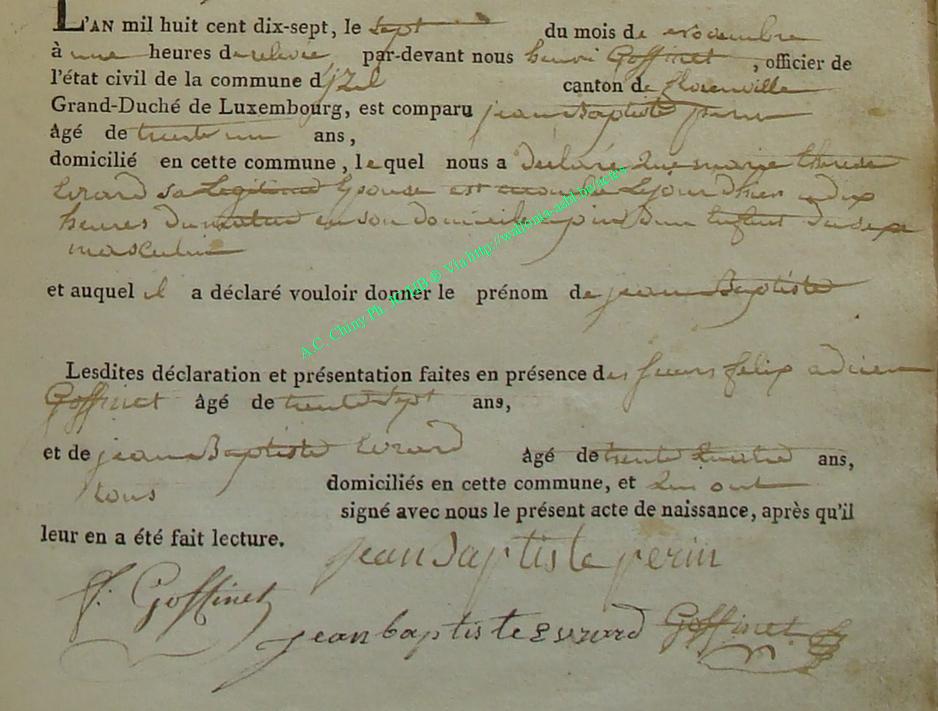 L'AN mil huit cent dix-sept, le sept du mois de novembre
à une heures de relevée, par-devant nous henri Goffinet, officier de
l'état civil de la commune d'jzel canton de florenville
Grand-Duché de Luxembourg, est comparu jean Baptiste perin
âgé de trente un ans,
domicilié en cette commune, lequel nous a déclaré que marie therese
Evrard sa Legitime Epouse est accouché Le jour d'hier a dix
heures du matin en son domicile d'un Enfant du sexe
masculin
et auquel il a déclaré vouloir donner le prénom de jean Baptiste
Lesdites déclaration et présentation faites en présence des sieurs felix adrien
Goffinet âgé de trente sept ans,
et de jean Baptiste Evrard âgé de trente quatre ans,
tous domiciliés en cette commune, et qui ont
signé avec nous le présent acte de naissance, après qu'il
leur en a été fait lecture.
jean baptiste perin
f. Goffinet
jean baptiste Evrard Goffinet
A.C. Chiny Ph. via http://wallonia-asbl.be/news